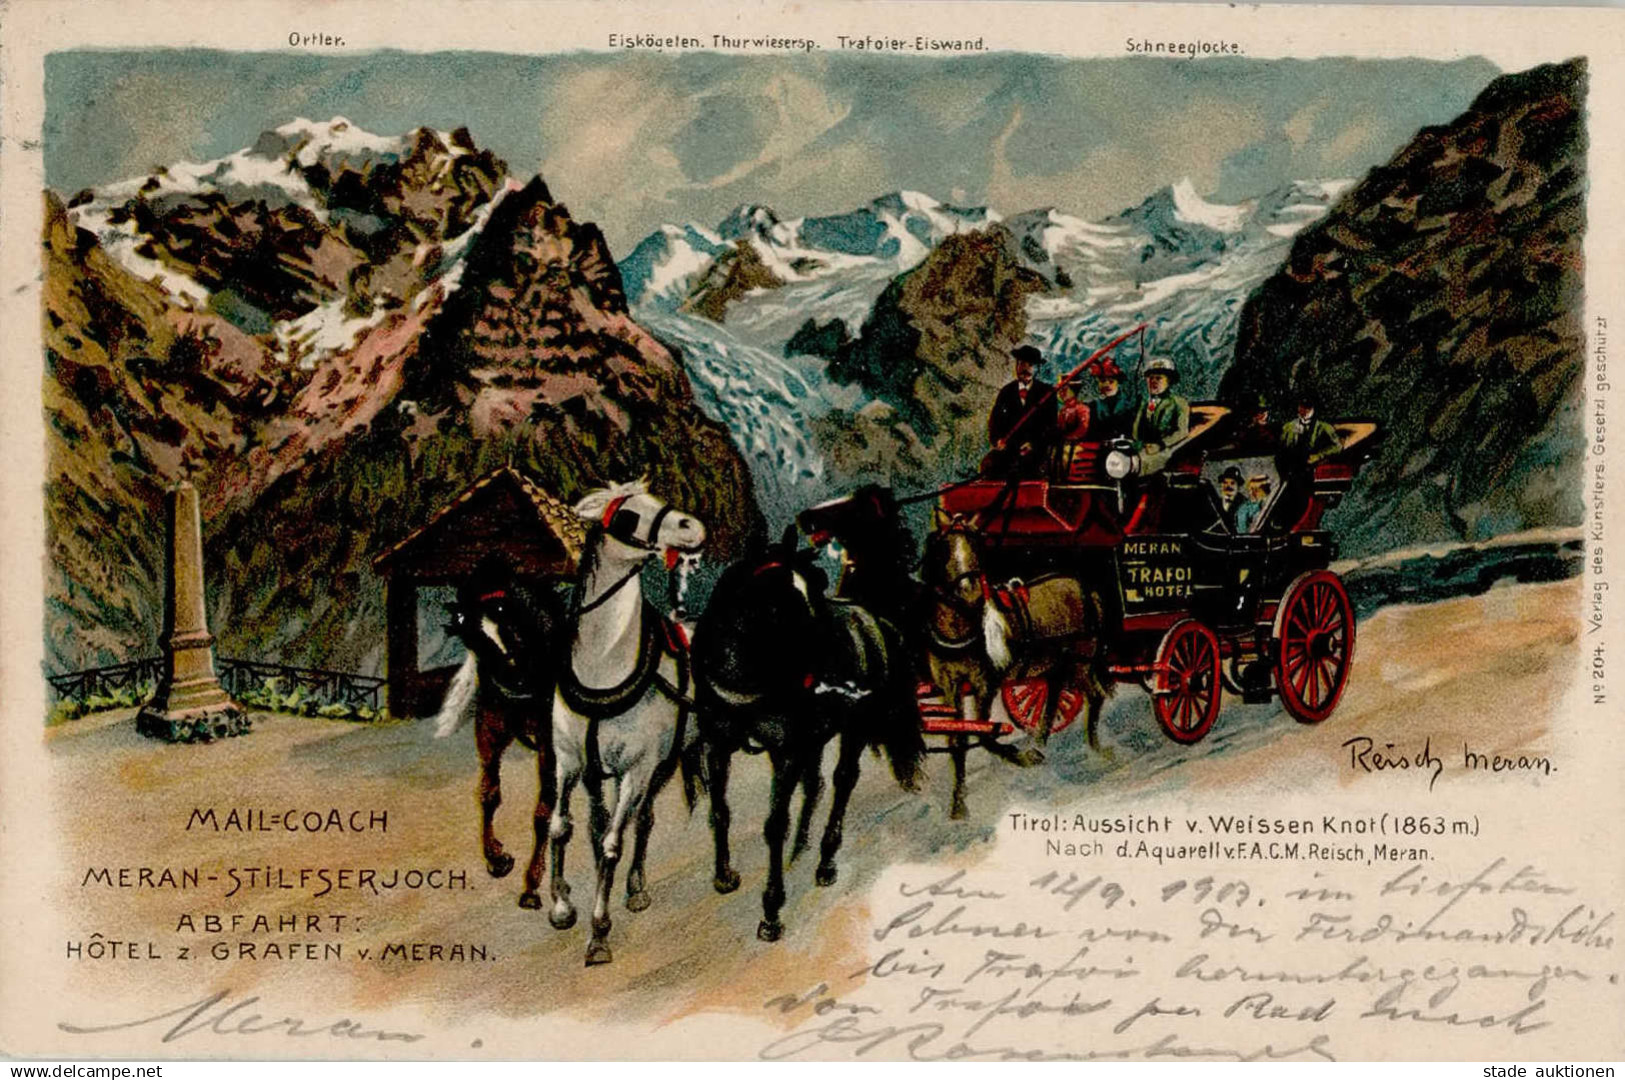 Ortler.
Eiskögelen. Thurwiesersp. Trafoier-Eiswand.
Schneeglocke.
MERAN
TRAFOI
HOTEL
Nº 204. Verlag des Künstlers. Gesetzl. geschützt
Reisch Meran.
MAIL=COACH
MERAN-STILFSERJOCH.
ABFAHRT:
HÔTEL z. GRAFEN v. MERAN.
Tirol: Aussicht v. Weissen Knot (1863 m.)
Nach d. Aquarell v. F.A.C.M. Reisch, Meran.
Am 12/9. 1903. im tiefsten
Schnee von der Ferdinandshöhe
bis Trafoi heruntergegangen.
Von Trafoi per Rad nach
Meran.
stade auktionen